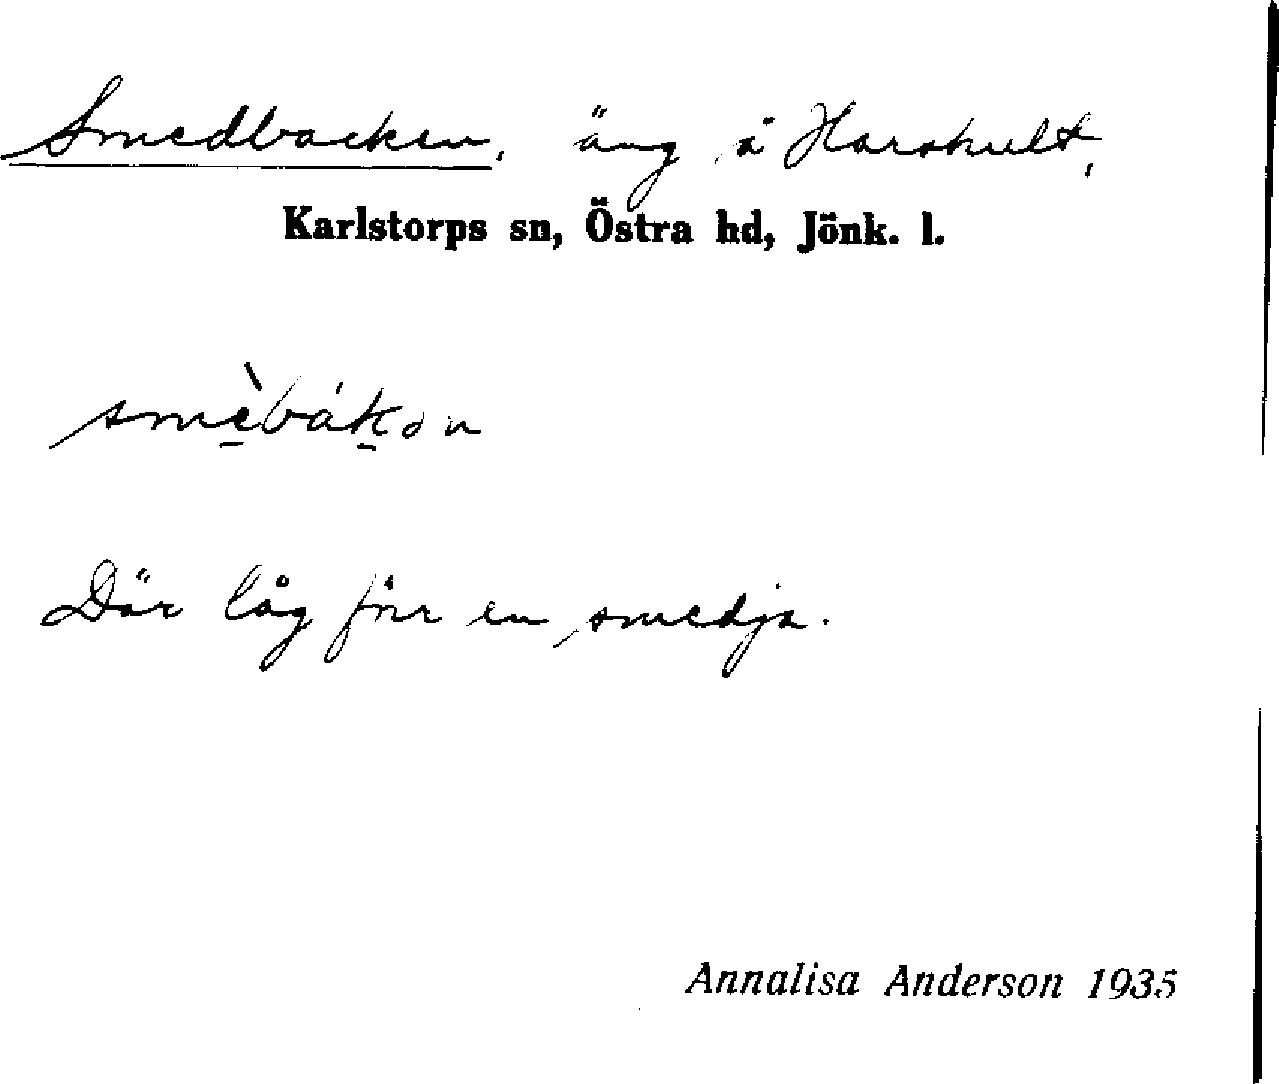 Smedbacken, äng å Harshult,
Karlstorps sn, Östra hd, Jönk. l.
smèbákən
Där låg förr en smedja.
Annalisa Anderson 1935